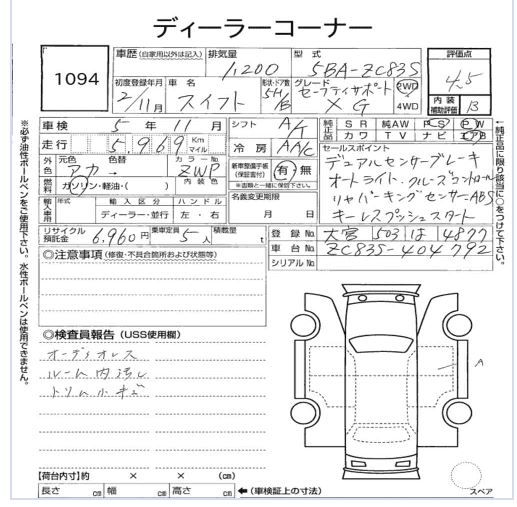 ディーラーコーナー
1094
車歴 (自家用以外は記入) 排気量 1,200 型式 5BA-ZC83S 評価点 4.5
初度登録年月 2/11月 車名 スイフト 形状・ドア数 5H/B グレード セーフティサポート XG 2WD 4WD 内装補助評価 B
車検 5年11月 シフト A/T 純正品 SR 純AW PS PW
走行 5,969 Km マイル 冷房 AAC カワ TV ナビ エアB
外色 元色 アカ 色替 → カラーNo. ZWP 内装色 新車整備手帳(保証書付) 有・無 ※書類と一緒に保管下さい。
燃料 ガソリン・軽油・( )
セールスポイント
デュアルセンサーブレーキ
オートライト・クルーズコントロール
リヤパーキングセンサーABS
キーレスプッシュスタート
輸入車用 年式 輸入区分 ディーラー・並行 ハンドル 左・右 名義変更期限 月 日
リサイクル預託金 6,960円 乗車定員 5人 積載量 t 登録No. 大宮 503 は 4877
車台No. ZC83S-404792
シリアルNo.
◎注意事項 (修復・不具合箇所および状態等)
◎検査員報告 (USS使用欄)
オーディオレス
トリム小キズ
A
スペア
【荷台内寸】約 × × (cm)
長さ cm 幅 cm 高さ cm ←(車検証上の寸法)
※必ず油性ボールペンをご使用下さい。水性ボールペンは使用できません。
←純正品に限り該当に○をつけて下さい。